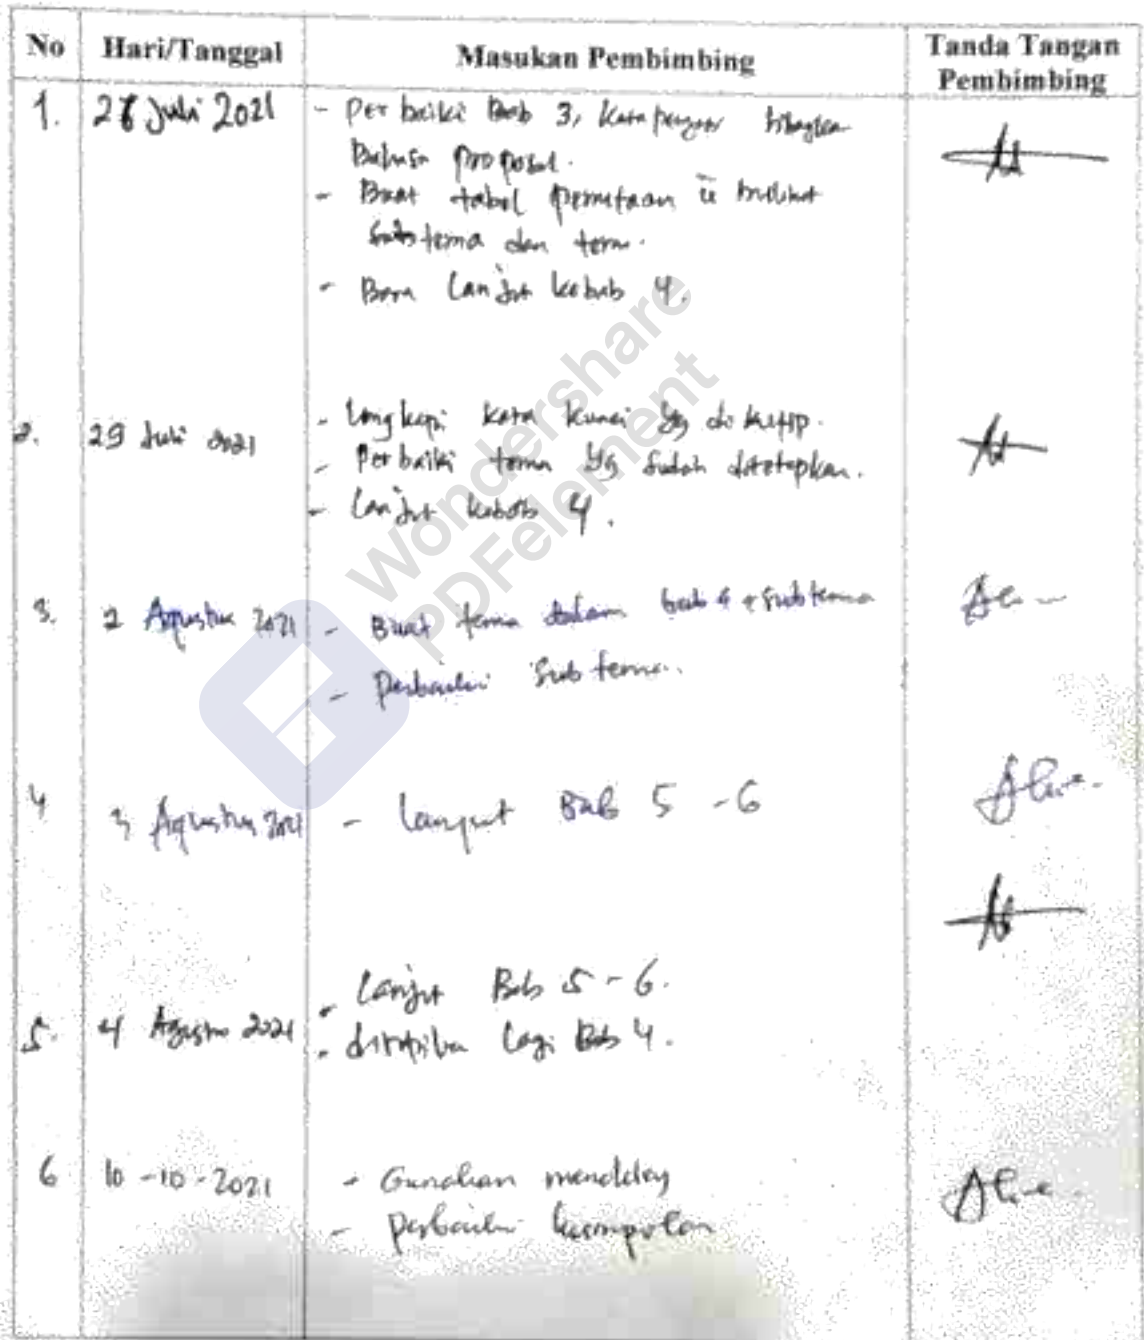 No Hari/Tanggal Masukan Pembimbing Tanda Tangan Pembimbing
1. Juli 2021 - Perbaiki Bab 3,
Bahasa proposal.
- Buat tabel pemetaan
subtema dan tema.
- Baru lanjut kebab 4.
2. 29 Juli 2021 - Lengkapi kata kunci yg di kutip.
- Perbaiki tema yg sudah ditetapkan.
- Lanjut kebab 4.
3. 2 Agustus 2021 - Buat tema dalam bab 4 + subtema
- Perbaiki Sub tema.
4 3 Agustus 2021 - Lanjut Bab 5 - 6
- Lanjut Bab 5 - 6.
5. 4 Agustus 2021 - lagi Bab 4.
6 10 - 10 - 2021 - Gunakan mendeley
- perbaiki
Wondershare
PDFelement